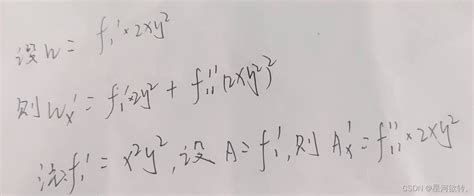 设W= f₁'·2xy²
则Wₓ'= f₁'·2y² + f₁₁''(2xy²)²
f₁'= x²y²,设A=f₁',则Aₓ'=f₁₁''×2xy²
CSDN @星河欲转。